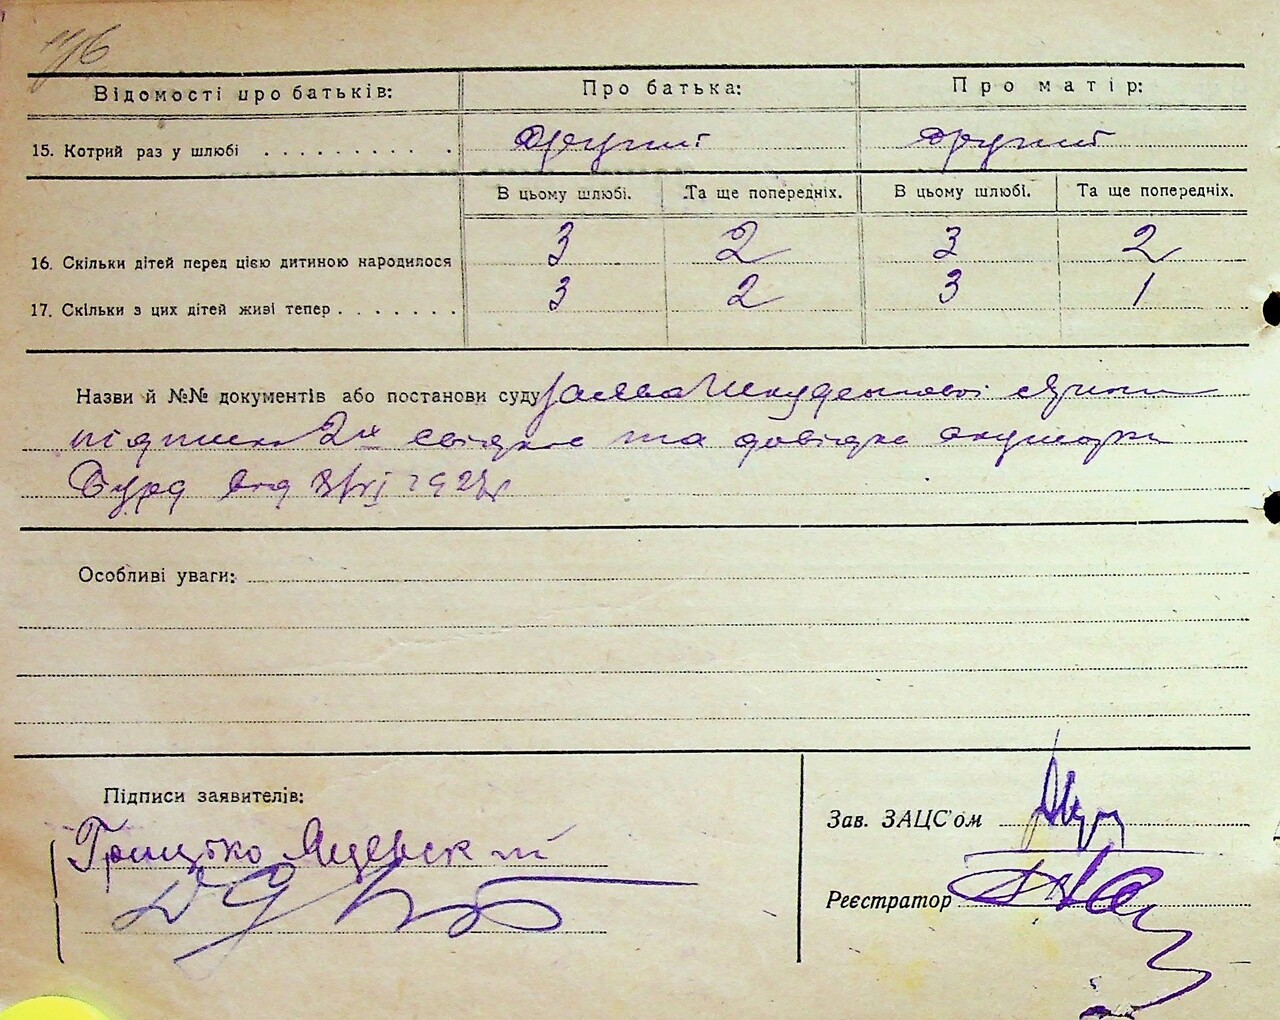 176
Відомості про батьків: Про батька: Про матір:
15. Котрий раз у шлюбі . . . . . . . . . . другий другий
В цьому шлюбі. Та ще попередніх. В цьому шлюбі. Та ще попередніх.
16. Скільки дітей перед цією дитиною народилося 3 2 3 2
17. Скільки з цих дітей живі тепер . . . . . . . 3 2 3 1
Назви й №№ документів або постанови суду заява
підписка 2х свідків та довідка акушерки
від 8/VI 192
Особливі уваги:
Підписи заявителів:
Зав. ЗАЦС'ом
Грицько Яцевский
Реєстратор